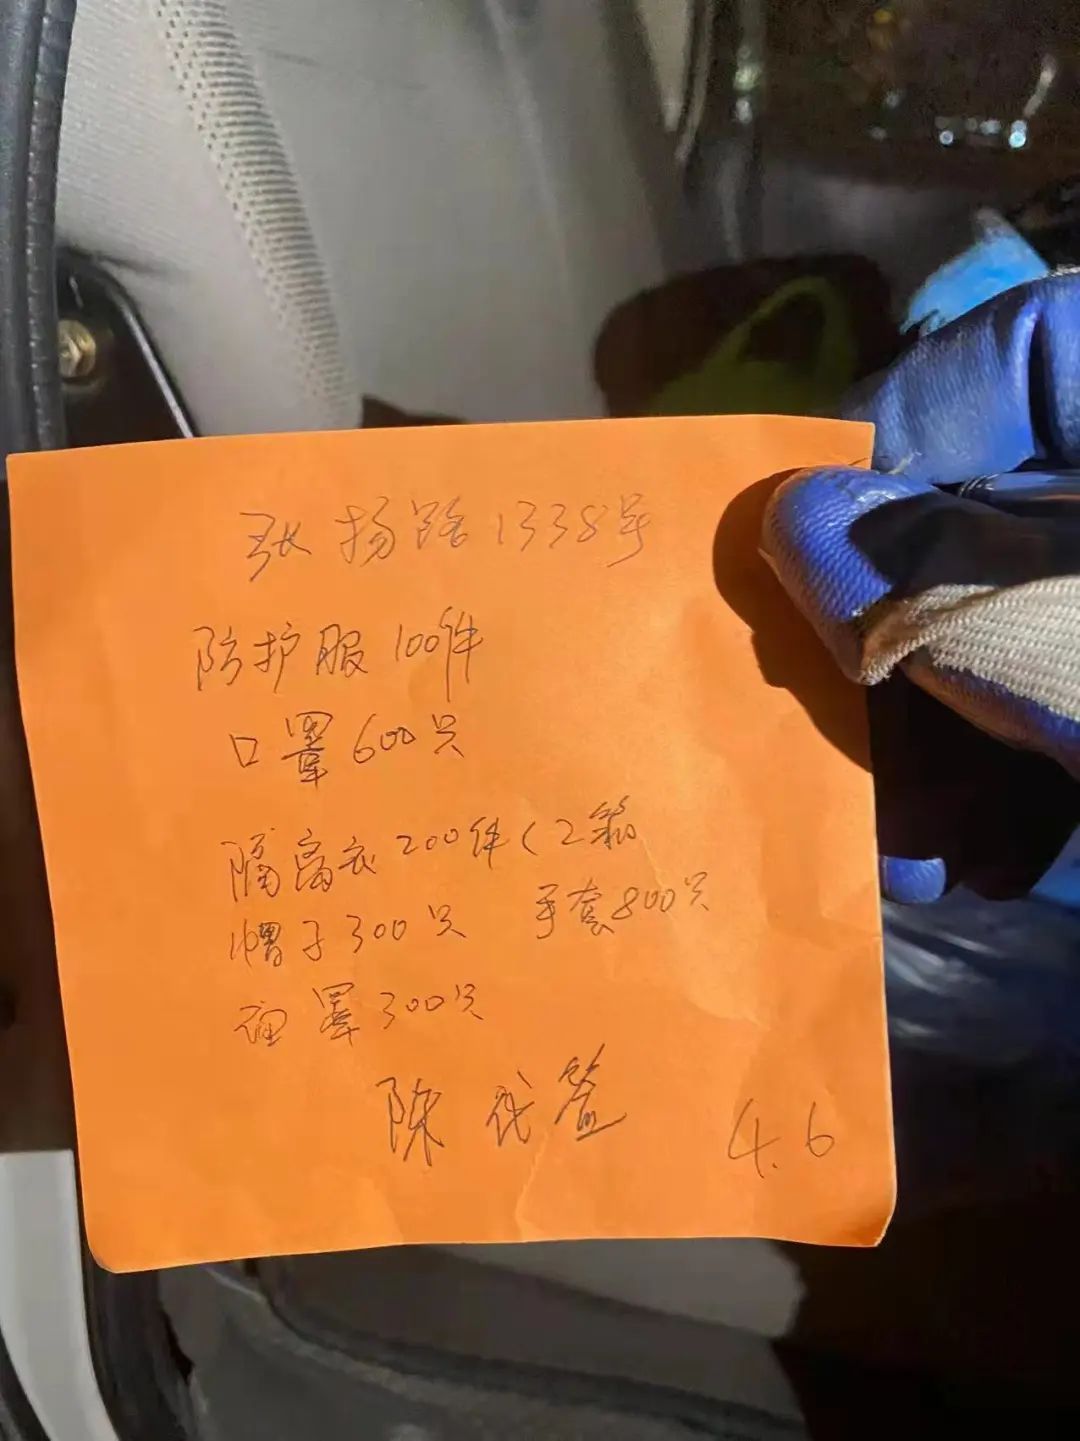 张扬路1338号
防护服100件
口罩600只
隔离衣200件(2箱
帽子300只 手套800只
面罩300只
陈代签 4.6